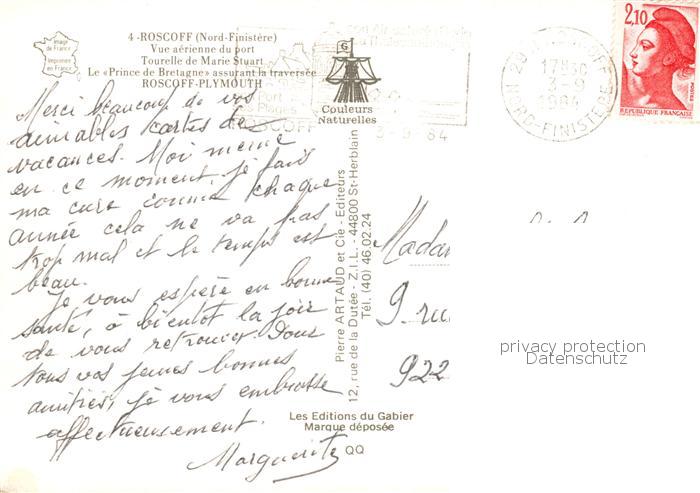 Image
de France
Imprimée
en France
4 - ROSCOFF (Nord-Finistère)
Vue aérienne du port
Tourelle de Marie Stuart
Le «Prince de Bretagne» assurant la traversée
ROSCOFF-PLYMOUTH
G
Couleurs
Naturelles
Port
Plages
ROSCOFF
3-9 84
29 ROSCOFF
17H30
3-9
1984
NORD-FINISTERE
2,10
POSTES
REPUBLIQUE FRANÇAISE
Merci beaucoup de vos
aimables cartes de
vacances. Moi même
en ce moment, je fais
ma cure comme chaque
année cela ne va pas
trop mal et le temps est
beau.
Je vous espère en bonne
santé, à bientôt la joie
de vous retrouver. Pour
tous vos jeunes bonnes
amitiés, je vous embrasse
affectueusement.
Marguerite
Pierre ARTAUD et Cie - Editeurs
12, rue de la Dutée - Z.I.L. - 44800 St-Herblain
Tél. (40) 46.02.24
Madam
9 rue
922
privacy protection
Datenschutz
Les Editions du Gabier
Marque déposée
QQ